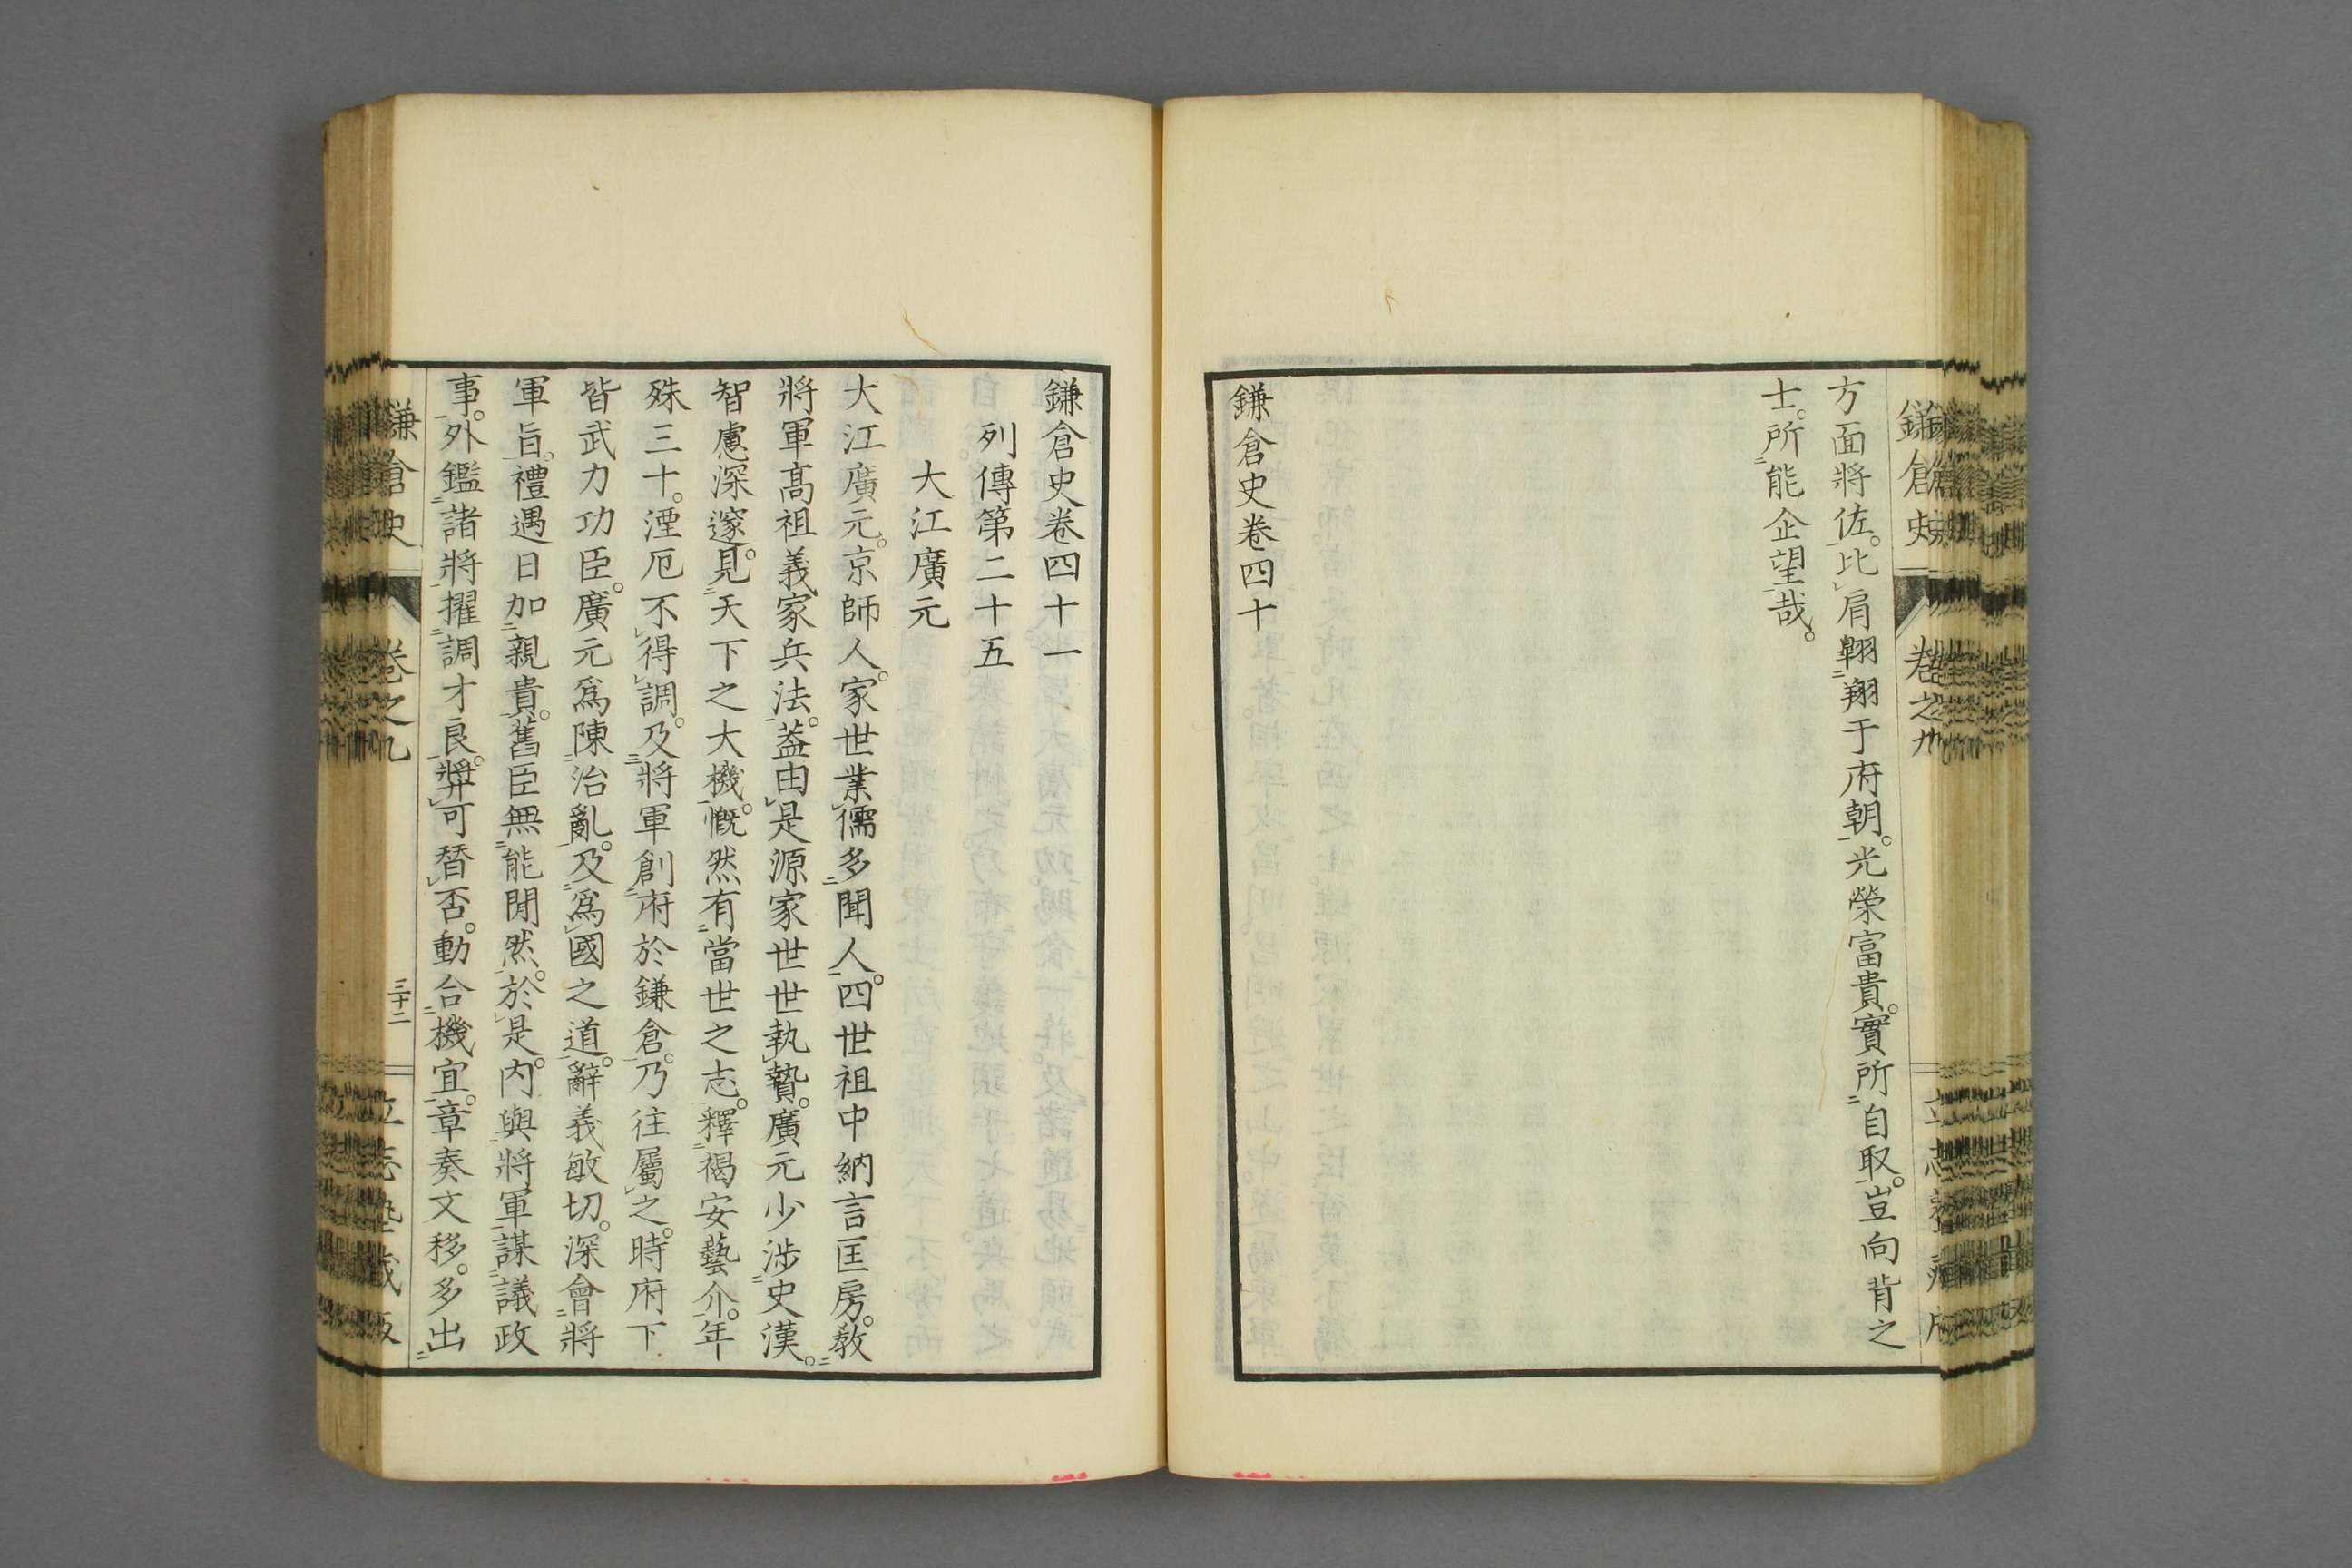 方面將佐。比肩翺翔于府朝。光榮富貴。實所自取。豈向背之
士。所能企望哉。
鎌倉史卷四十
鎌倉史卷四十一
列傳第二十五
大江廣元
大江廣元。京師人。家世業儒多聞人。四世祖中納言匡房。敎
將軍高祖義家兵法。葢由是源家世世執贄。廣元少涉史漢。
智慮深邃。見天下之大機。慨然有當世之志。釋褐安藝介。年
殊三十。湮厄不得調。及將軍創府於鎌倉。乃往屬之。時府下
皆武力功臣。廣元爲陳治亂。及爲國之道。辭義敏切。深會將
軍旨。禮遇日加親貴。舊臣無能閒然。於是。内與將軍謀議政
事。外鑑諸將擢調才良。獎可替否。動合機宜。章奏文移。多出
鎌倉史
卷之九
三十二